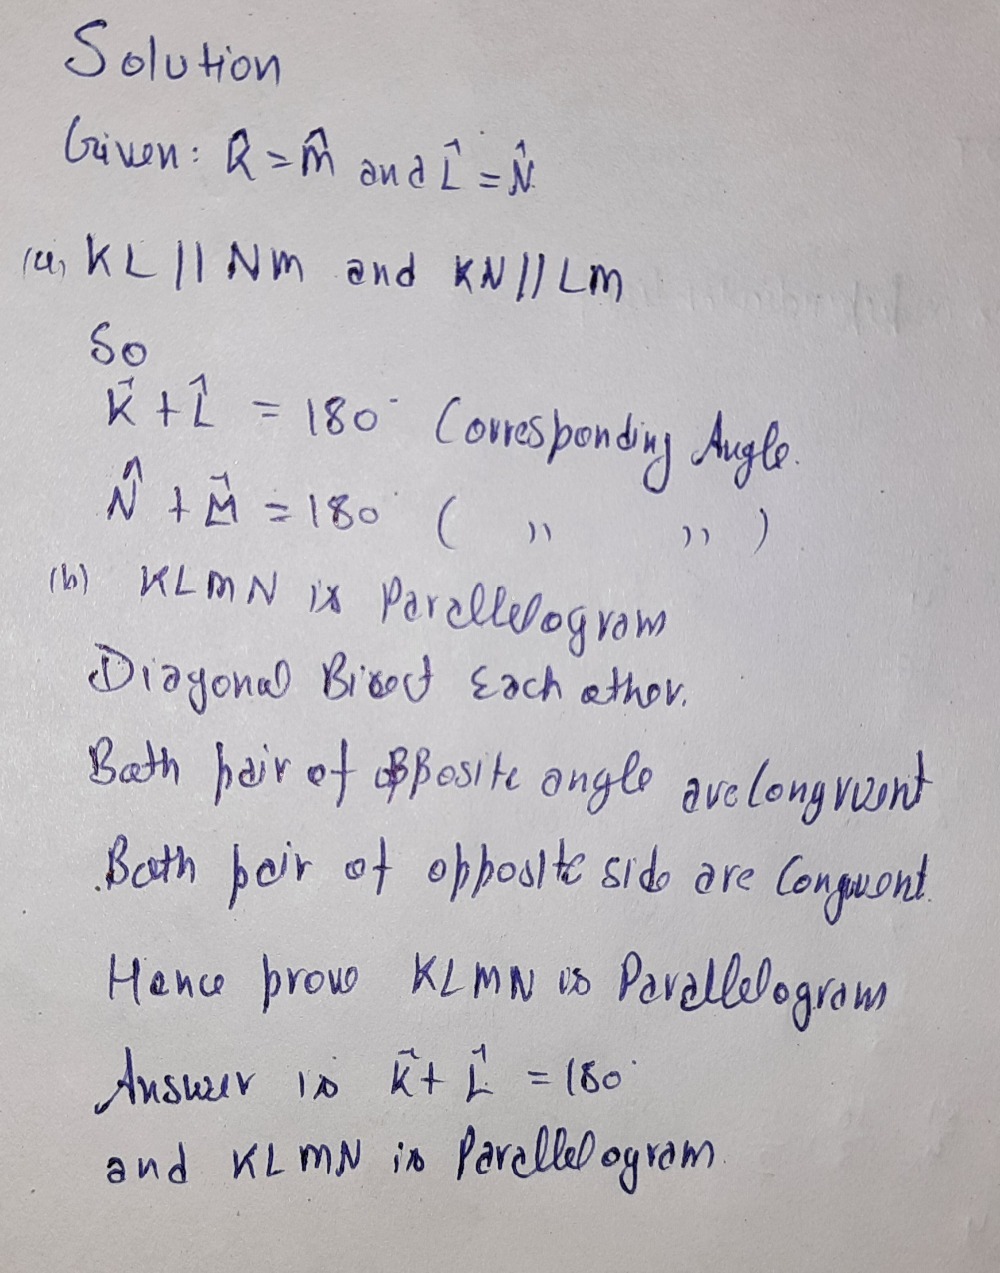 Solution
Given: K̂ = M̂ and L̂ = N̂
(a) KL || NM and KN || LM
So
K̂ + L̂ = 180° Corresponding Angle.
N̂ + M̂ = 180° ( ,, ,, )
(b) KLMN is Parallelogram
Diagonal Bisect Each other.
Both pair of opposite angle are Congruent
Both pair of opposite side are Congruent.
Hence prove KLMN is Parallelogram
Answer is K̂ + L̂ = 180°
and KLMN is Parallelogram.